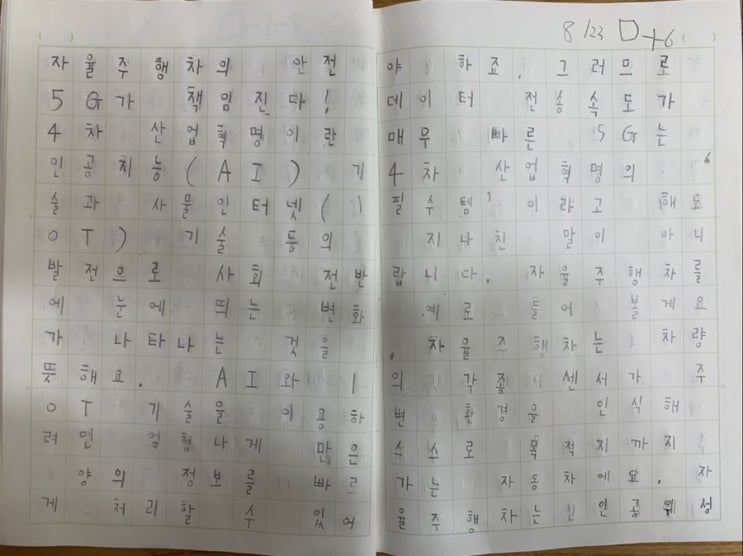 8/23 D+6
자율주행차의 안전
5G가 책임진다!
4차 산업혁명이란
인공치능(AI) 기
술과 사물인터넷(I
OT) 기술 등의
발전으로 사회 전반
에 눈에 띄는 변화
가 나타나는 것을
뜻해요. AI와 I
OT 기술을 이용하
려면 엉청나게 많은
양의 정보를 빠르
게 처리할 수 있어
야 하죠. 그러므로
데이터 전송속도가
매우 빠른 5G는
4차 산업혁명의 '
필수템' 이라고 해도
지나친 말이 아니
랍니다. 자율주행차를
예로 들어 볼게요
. 자율주행차는 차량
의 각종 센서가 주
변 환경을 인식해
스스로 목적지까지
가는 자동차에요. 자
율주행차는 인공위성